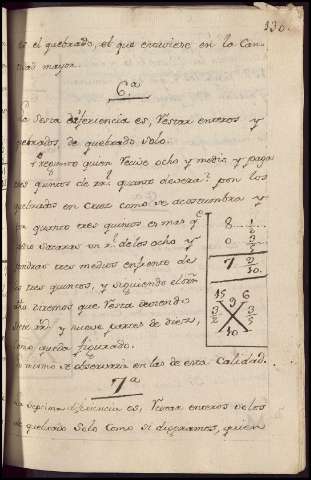 130.
es el quebrado, el que estuviere en la Can-
tidad mayor.
6.ª
La Sesta diferiencia es, Restar enteros y
quebrados, de quebrado Solo.
Pregunto quien Recive ocho y medio y paga
tres quintos de R.ˢ quanto devera? pon los
quebrados en Cruz como se acostumbra y
por quanto tres quintos es mas q.ᵉ
medio sacaras un R.ˡ de los ocho y
pondras tres medios enfrente de
los tres quintos, y siguiendo el
diremos que Resta deviendo
Siete R.ˢ y nueve partes de diez,
como queda figurado.
Lo mismo se observara en las de esta Calidad.
8 .. 1/2
0 .. 3/5
7 9/10.
15 9 6
3/2 3/5
10
7ª
La Septima diferiencia es, Restar enteros solos
de quebrado Solo como si dixeramos, quien